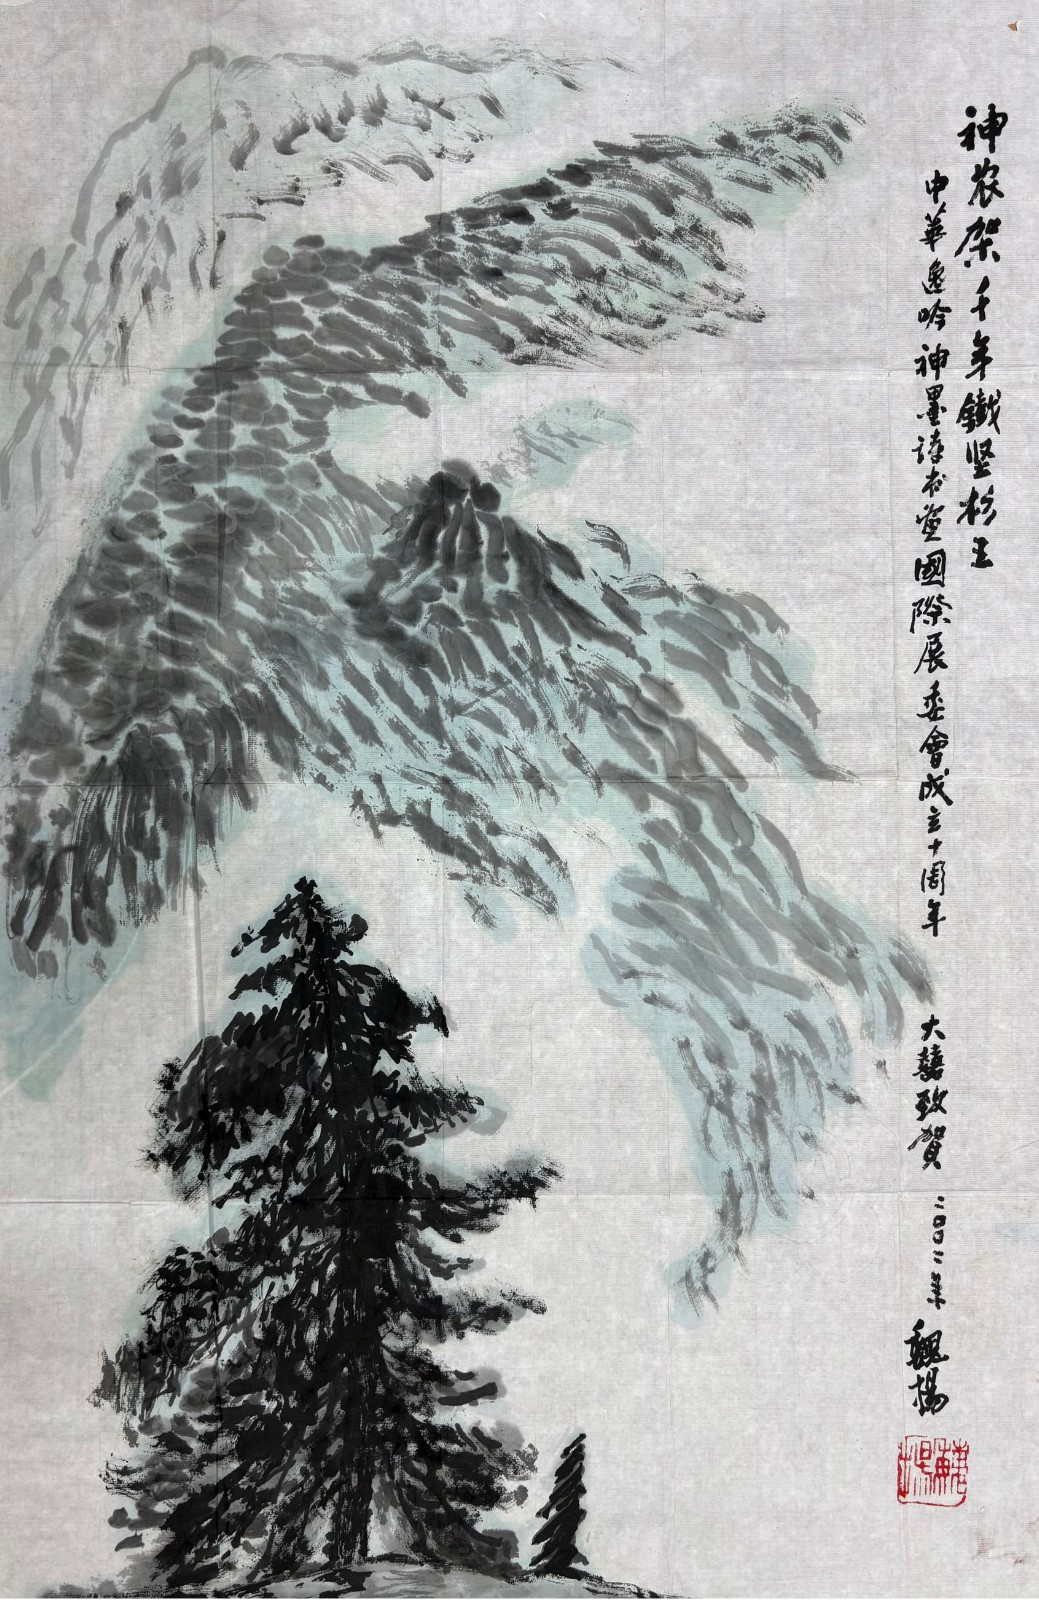 神农架千年鐵坚杉王
中華逸吟神墨诗书画國際展委會成立十周年 大囍致贺 二〇〇二年 魏揚